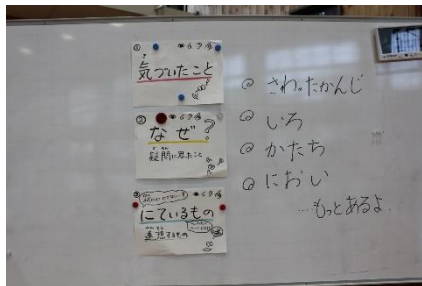 ①
気づいたこと
②
なぜ?
疑問に思ったこと
③
にているもの
連想するもの
さわったかんじ
いろ
かたち
におい
…もっとあるよ